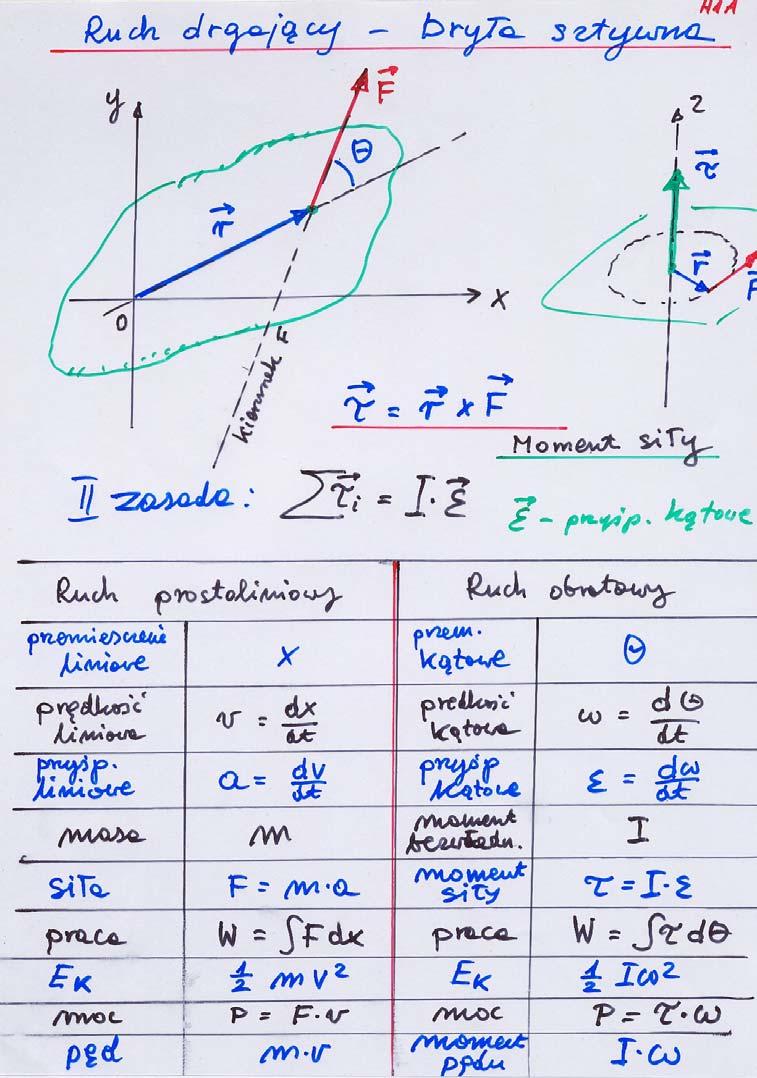 H1A
Ruch drgający – bryła sztywna
y
F⃗
θ
r⃗
0
x
kierunek F
z
τ⃗
r⃗
F
τ⃗ = r⃗ × F⃗
Moment siły
II zasada: ∑τ⃗ᵢ = I·ε⃗
ε⃗ – przysp. kątowe
Ruch prostoliniowy | Ruch obrotowy
przemieszczenie liniowe | x | przem. kątowe | Θ
prędkość liniowa | v = dx/dt | prędkość kątowa | ω = dΘ/dt
przysp. liniowe | a = dv/dt | przysp kątowe | ε = dω/dt
masa | m | moment bezwładn. | I
siła | F = m·a | moment siły | τ = I·ε
praca | W = ∫F dx | praca | W = ∫τ dθ
Eₖ | 1/2 mv² | Eₖ | 1/2 Iω²
moc | P = F·v | moc | P = τ·ω
pęd | m·v | moment pędu | I·ω